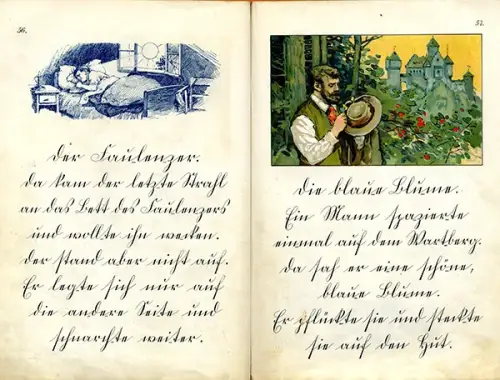 56.
Der Faulenzer.
Da kam der letzte Strahl
an das Bett des Faulenzers
und wollte ihn wecken.
Der stand aber nicht auf.
Er legte sich nur auf
die andere Seite und
schnarchte weiter.
57.
Die blaue Blume.
Ein Mann spazierte
einmal auf dem Wartberg.
Da sah er eine schöne,
blaue Blume.
Er pflückte sie und steckte
sie auf den Hut.